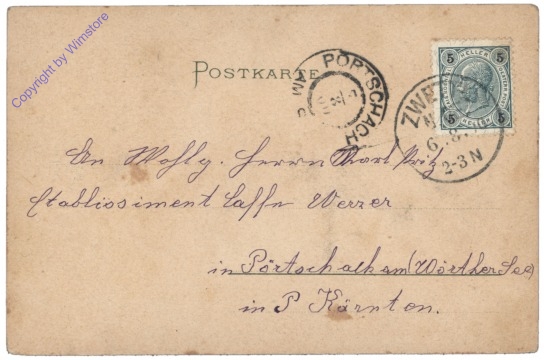 Copyright by Wimstore
POSTKARTE
PÖRTSCHACH
AM
5 HELLER 5
5 HELLER 5
ZWE
6. 8.
2-3 N
An Wohlg. Herrn
Etablissiment Caffe Werzer
in Pörtschach am (Wörther See)
in P Kärnten.